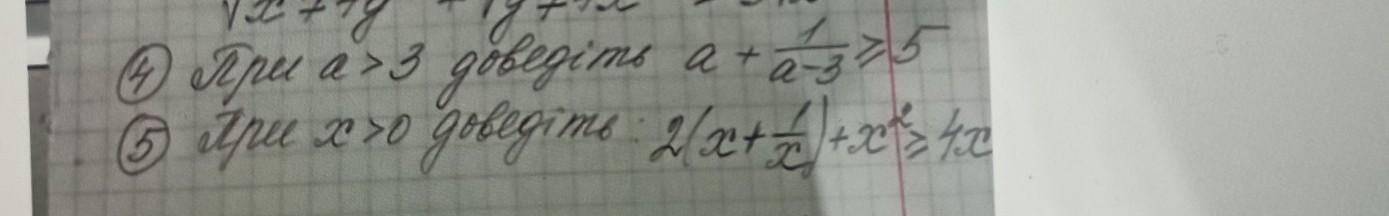 ④ При a > 3 доведіть a + 1/(a-3) ≥ 5
⑤ При x > 0 доведіть: 2(x + 1/x) + x² ≥ 4x